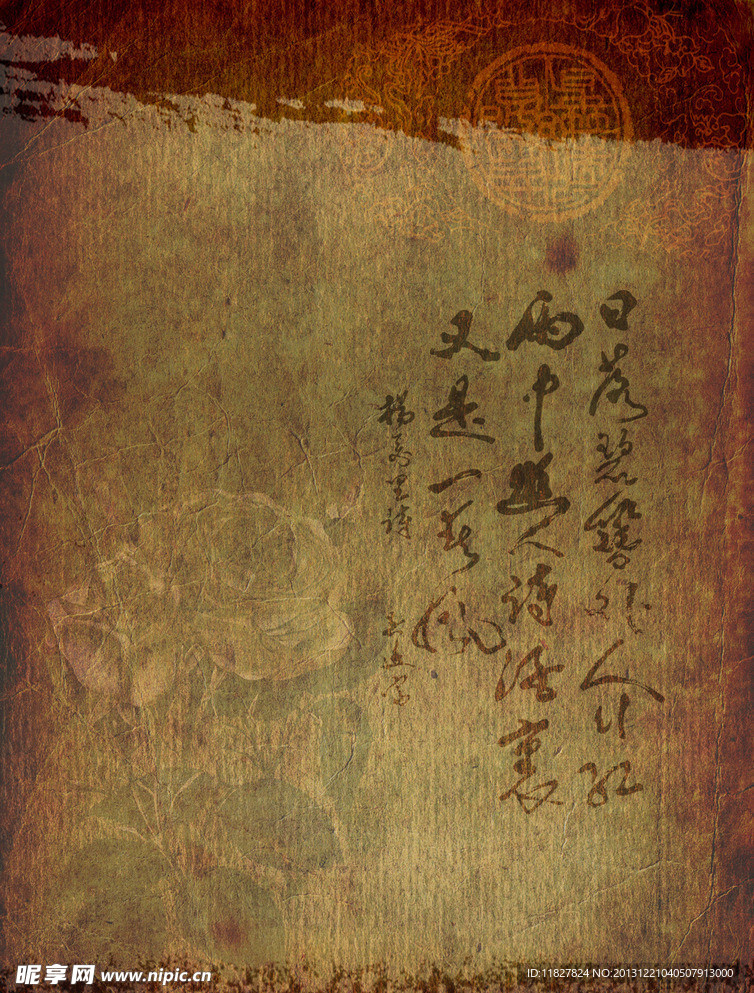 日落碧簪外人行紅
雨中幽人詩酒裏
又是一春風
楊萬里詩
昵享网 www.nipic.cn
ID:11827824 NO:20131221040507913000